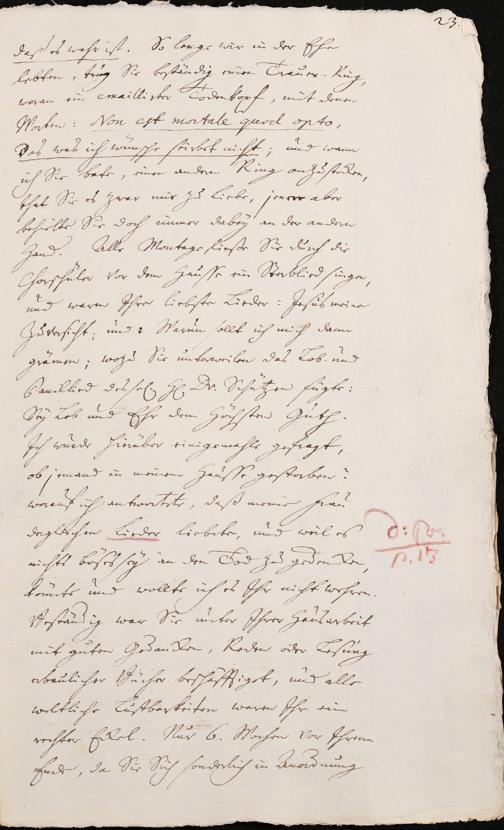 23.
daß es wahr ist. So lange wir in der Ehe
lebten, trug Sie beständig einen Trauer-Ring,
woran ein emaillirter Todenkopf, mit denen
Worten: Non est mortale quod opto,
Das was ich wünsche stirbet nicht; und wann
ich Sie bate, einen andern Ring anzustecken,
that Sie es zwar mir zu Liebe, jener aber
behielte Sie doch immer dabey an der andern
Hand. Alle Montage ließe Sie durch die
Chorschüler vor dem Hausse ein Sterblied singen,
und waren Ihre liebste Lieder: Jesus meine
Zuversicht; und: Warum sollt ich mich dann
grämen; wozu Sie unterweilen das Lob und
Dr. Schützen fügte:
Sey Lob und Ehr dem Höchsten Guth.
Ich wurde hierüber einigemahle gefragt,
ob jemand in meinem Hausse gestorben?
worauf ich antwortete, daß meine Frau
dergleichen Lieder liebete, und weil es
nichts böses sey an den Tod zu gedencken,
könnte und wollte ich es Ihr nicht wehren.
Beständig war Sie unter Ihrer Hausarbeit
mit guten Gedancken, Reden oder Lesung
erbaulicher Bücher beschäfftiget, und alle
weltliche Lustbarkeiten waren Ihr ein
rechter Eckel. Nur 6. Wochen vor Ihrem
Ende, da Sie Sich sonderlich in Anordnung
p. 13